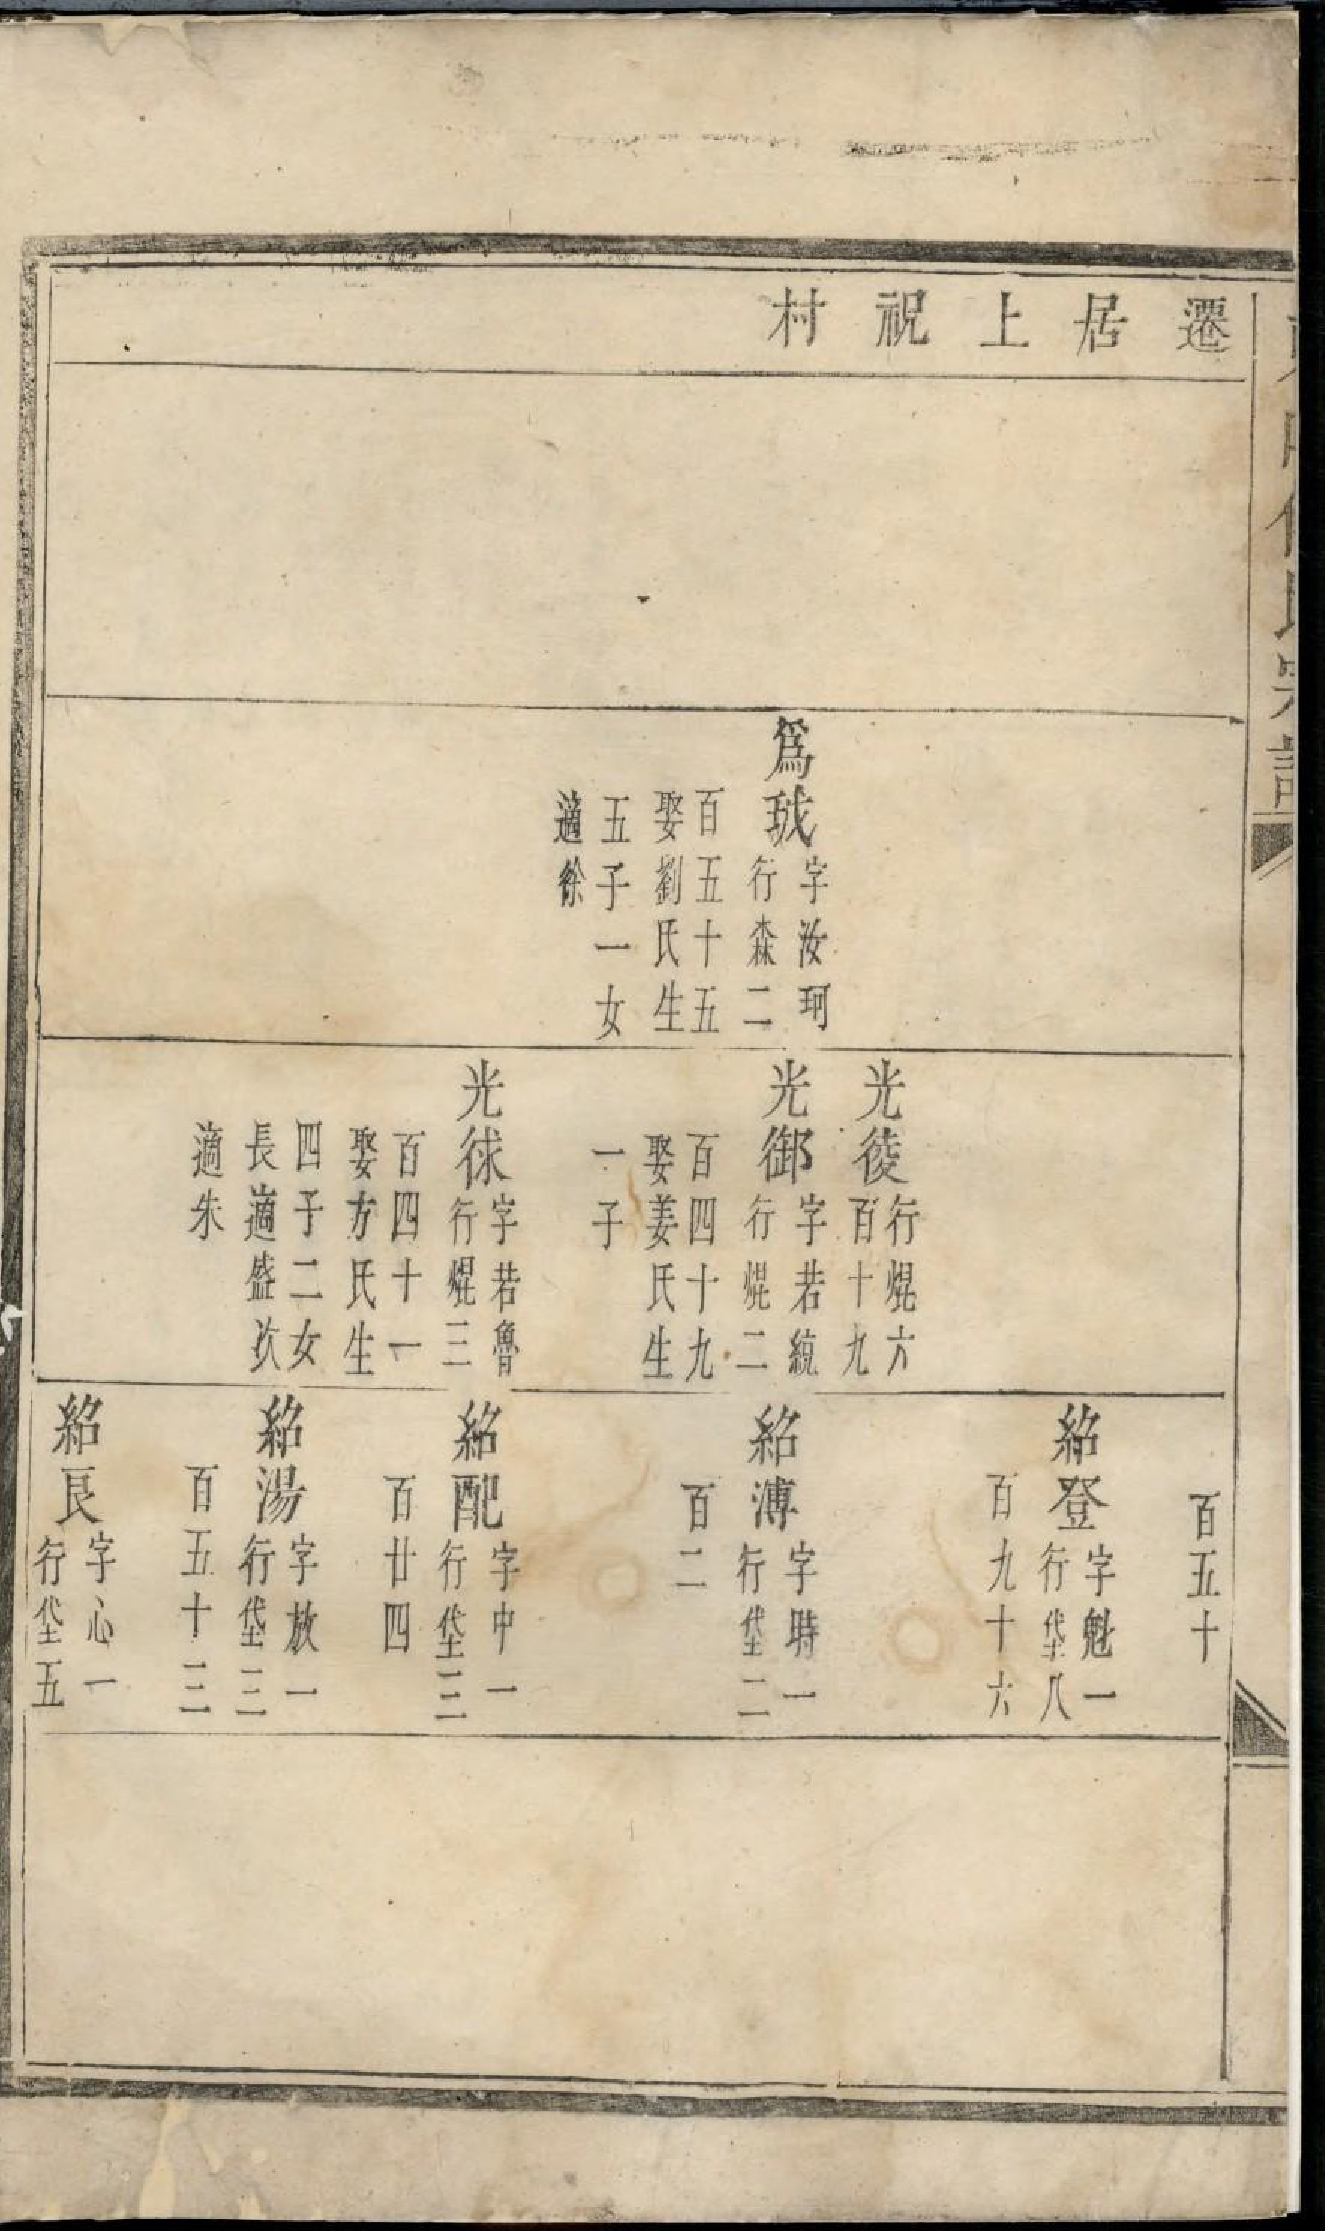 遷居上祝村
氏宗譜
爲珬
字汝珂
行森二
百五十五
娶劉氏生
五子一女
適徐
光㥄
行焜六
百十九
光御
字若統
行焜二
百四十九
娶姜氏生
一子
光俅
字若魯
行焜三
百四十一
娶方氏生
四子二女
長適盛次
適朱
百五十
紹登
字魁一
行垈八
百九十六
紹溥
字時一
行垈二
百二
紹配
字中一
行垈三
百廿四
紹湯
字放一
行垈三
百五十三
紹艮
字心一
行垈五